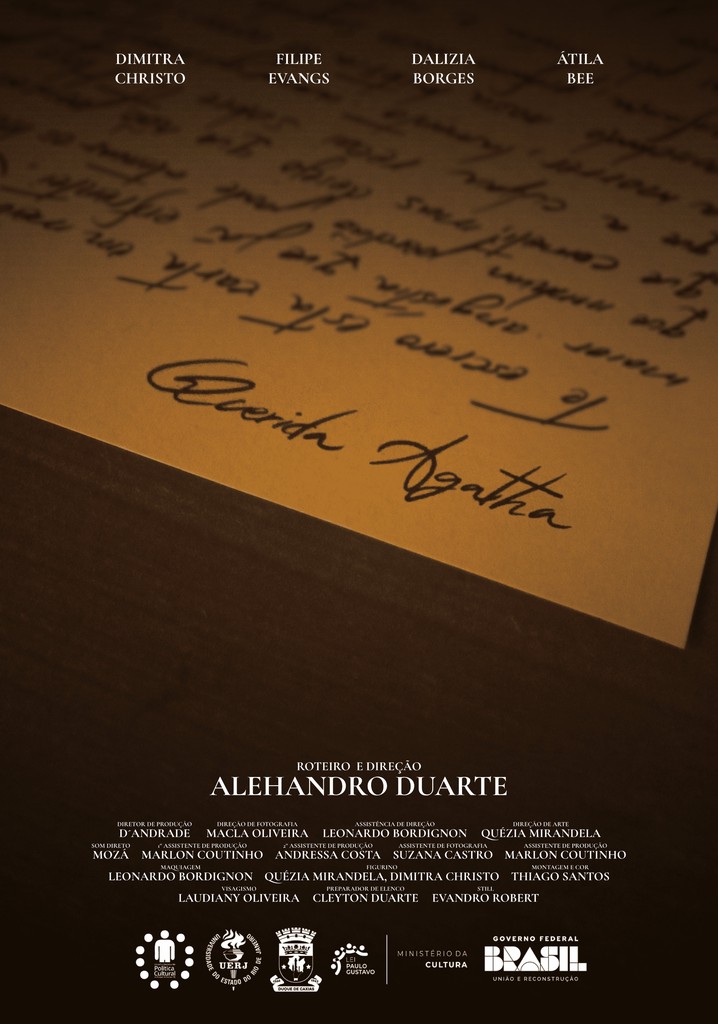 DIMITRA CHRISTO
FILIPE EVANGS
DALIZIA BORGES
ÁTILA BEE
Te escrevo esta carta em meio
maior angustia que já enfrentei
que
Querida Agatha
ROTEIRO E DIREÇÃO
ALEHANDRO DUARTE
DIRETOR DE PRODUÇÃO DIREÇÃO DE FOTOGRAFIA ASSISTÊNCIA DE DIREÇÃO DIREÇÃO DE ARTE
D´ANDRADE MACLA OLIVEIRA LEONARDO BORDIGNON QUÉZIA MIRANDELA
SOM DIRETO 1º ASSISTENTE DE PRODUÇÃO 2º ASSISTENTE DE PRODUÇÃO ASSISTENTE DE FOTOGRAFIA ASSISTENTE DE PRODUÇÃO
MOZÁ MARLON COUTINHO ANDRESSA COSTA SUZANA CASTRO MARLON COUTINHO
MAQUIAGEM FIGURINO MONTAGEM E COR
LEONARDO BORDIGNON QUÉZIA MIRANDELA, DIMITRA CHRISTO THIAGO SANTOS
VISAGISMO PREPARADOR DE ELENCO STILL
LAUDIANY OLIVEIRA CLEYTON DUARTE EVANDRO ROBERT
Política Cultural
UNIVERSIDADE DO ESTADO DO RIO DE JANEIRO
UERJ
DUQUE DE CAXIAS
LEI PAULO GUSTAVO
MINISTÉRIO DA CULTURA
GOVERNO FEDERAL
BRASIL
UNIÃO E RECONSTRUÇÃO